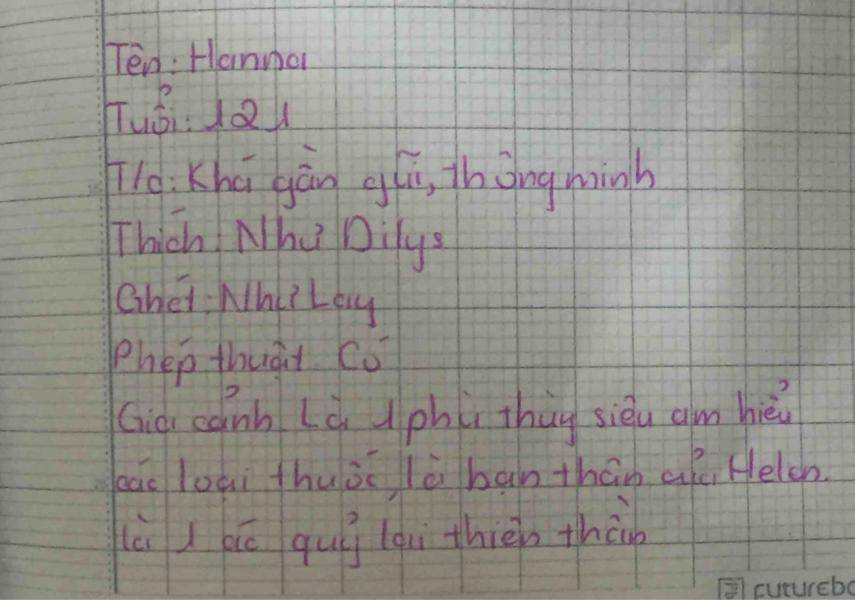 Tên: Hanna
Tuổi: 121
T/c: Khá gần gũi, thông minh
Thích: Như Dilys
Ghét: Như Lay
Phép thuật: Có
Gia cảnh: Là 1 phù thủy siêu am hiểu
các loại thuốc, là bạn thân của Helen.
là 1 ác quỷ lai thiên thần